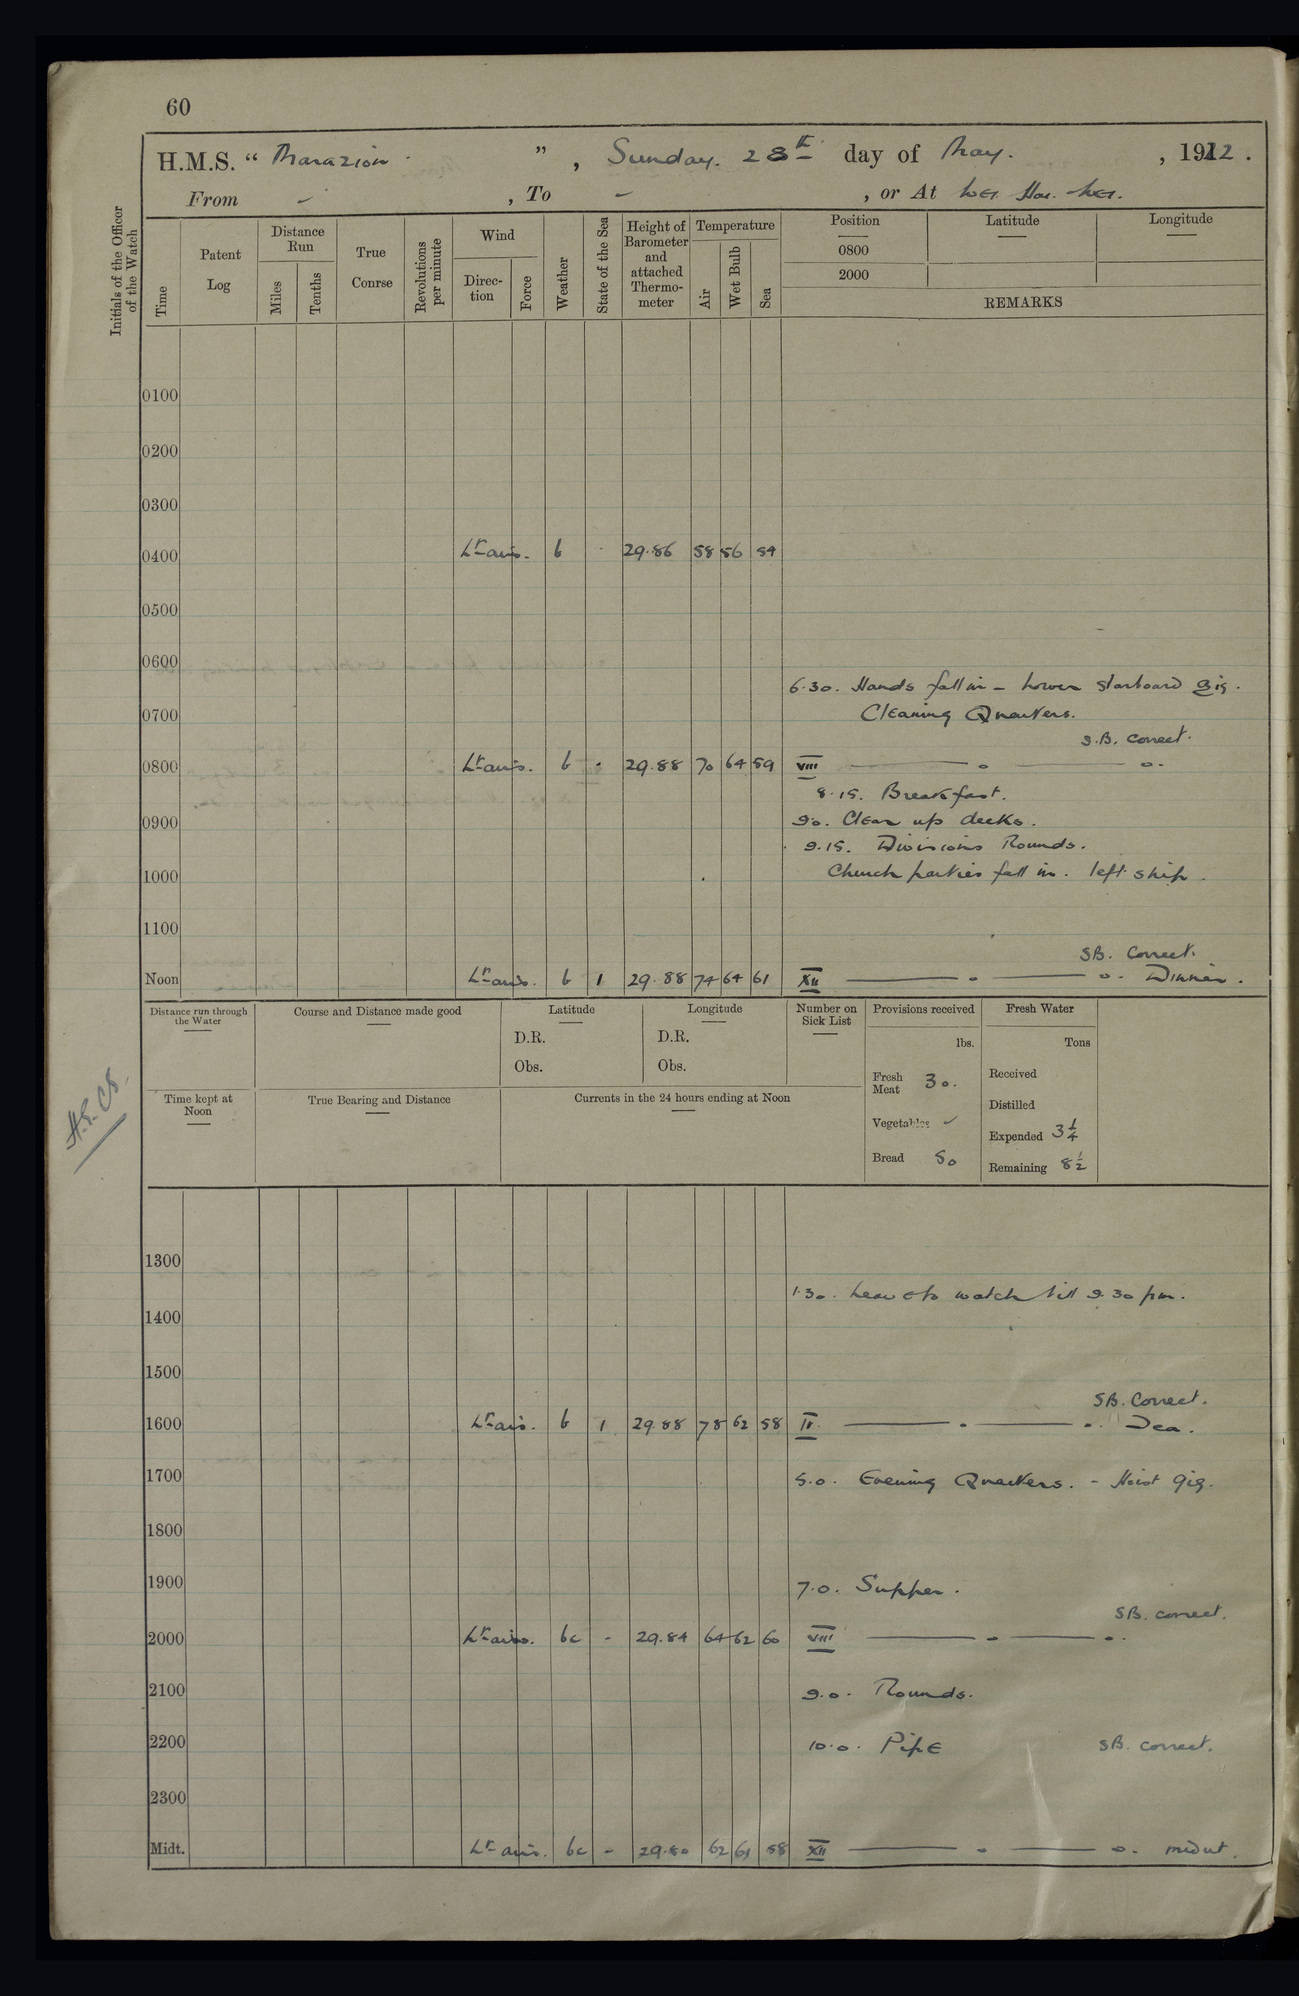 60
H.M.S. " Marazion. ", Sunday. 28th day of May. , 1922.
From - , To - , or At Wei Hai Wei.
Initials of the Officer of the Watch
Time
Patent Log
Distance Run
Miles
Tenths
True Conrse
Revolutions per minute
Wind
Direc-tion
Force
Weather
State of the Sea
Height of Barometer and attached Thermo-meter
Temperature
Air
Wet Bulb
Sea
Position Latitude Longitude
0800
2000
REMARKS
0100
0200
0300
0400 Lt airs. b . 29.86 58 56 54
0500
0600
6.30. Hands fall in - Lower starboard gig.
0700 Cleaning Quarters.
S.B. Correct.
0800 Lt airs. b . 29.88 70 64 59 VIII — o — o.
8.15. Breakfast.
0900 9.0. Clear up decks.
9.15. Divisions Rounds.
1000 Church parties fall in. left ship.
1100
SB. Correct.
Noon Lt airs. b 1 29.88 74 64 61 XII — o — o. Dinner.
Distance run through the Water
Course and Distance made good
Latitude
D.R.
Obs.
Longitude
D.R.
Obs.
Number on Sick List
Provisions received
lbs.
Fresh Meat 30.
Vegetables ✓
Bread 50
Fresh Water
Tons
Received
Distilled
Expended 3 1/4
Remaining 8 1/2
Time kept at Noon
True Bearing and Distance
Currents in the 24 hours ending at Noon
1300
1.30. Leave to watch till 9.30 pm.
1400
1500
SB. Correct.
1600 Lt airs. b 1 29.88 78 62 58 IV. — o — o. Tea.
1700 5.0. Evening Quarters. - Hoist gig.
1800
1900 7.0. Supper.
SB. correct.
2000 Lt airs. bc - 29.84 64 62 60 VIII — o — o.
2100 9.0. Rounds.
2200 10.0. Pipe SB. correct.
2300
Midt. Lt airs. bc - 29.80 62 61 58 XII — o — o. midnt.